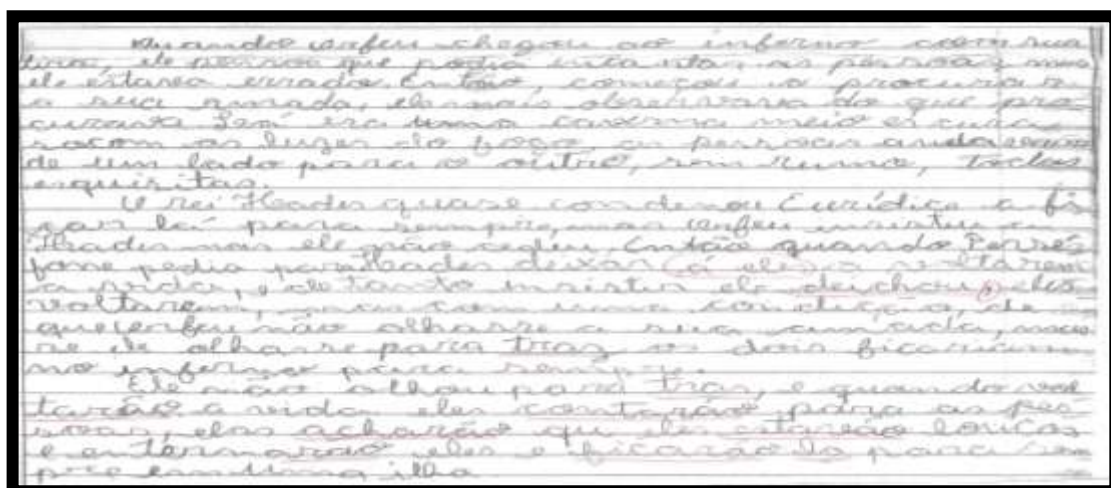 Quando Orfeu chegou ao inferno com sua
lira, ele pensou que podia encantar as pessoas mas
ele estava errado. Então, começou a procurar
a sua amada, ele mais observava do que pro
curava. Lá era uma caverna meio escura
com as luzes do fogo, as pessoas andavam
de um lado para o outro, sem rumo, todas
esquisitas.
O rei Hades quase condenou Eurídice a fi
car lá para sempre, mas Orfeu insistiu a
Hades mas ele não cedeu. Então quando Persé
fone pediu para Hades deixar á eles voltarem
a vida, e de tanto insistir ele deichou eles
voltarem, mas com uma condição, de
que Orfeu não olhasse a sua amada, mas
se ele olhasse para traz os dois ficariam
no inferno para sempre.
Ele não olhou para traz, e quando vol
tarão a vida eles contarão para as pes
soas, elas acharão que eles estavão loucos
e enternarão eles e ficarão lá para sem
pre em uma ilha